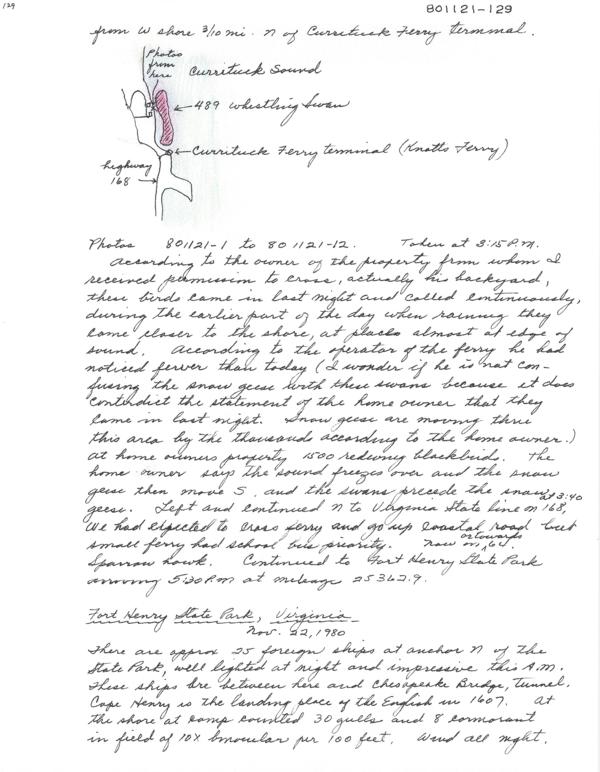 129
801121-129
from W shore 3/10 mi. N of Currituck Ferry terminal.
Photos
from
here
Currituck Sound
489 Whistling Swan
Currituck Ferry terminal (Knotts Ferry)
highway
168
Photos 801121-1 to 801121-12. Taken at 3:15 P.M.
According to the owner of the property from whom I
received permission to cross, actually his backyard,
these birds came in last night and called continuously,
during the earlier part of the day when raining they
come closer to the shore, at places almost at edge of
sound. According to the operator of the ferry he had
noticed fewer than today (I wonder if he is not con-
fusing the snow geese with these swans because it does
conterdict the statement of the home owner that they
came in last night. Snow geese are moving thru
this area by the thousands according to the home owner.)
At home owners property 1500 redwing blackbirds. The
home owner says the sound freezes over and the snow
geese then move S, and the swans precede the snow
geese. Left and continued N to Virginia State line on 168, at 3:40
We had expected to cross ferry and go up coastal road but
small ferry had school bus priority. Now on or towards 64.
Sparrow hawk. Continued to Fort Henry State Park
arriving 5:30 P.M. at mileage 25362.9.
Fort Henry State Park, Virginia
Nov. 22, 1980
There are approx 25 foreign ships at anchor N of the
State Park, well lighted at night and impressive this A.M.
These ships are between here and Chesapeake Bridge, Tunnel.
Cape Henry is the landing place of the English in 1607. At
the shore at camp counted 30 gulls and 8 cormorant
in field of 10X binocular per 100 feet. Wind all night.